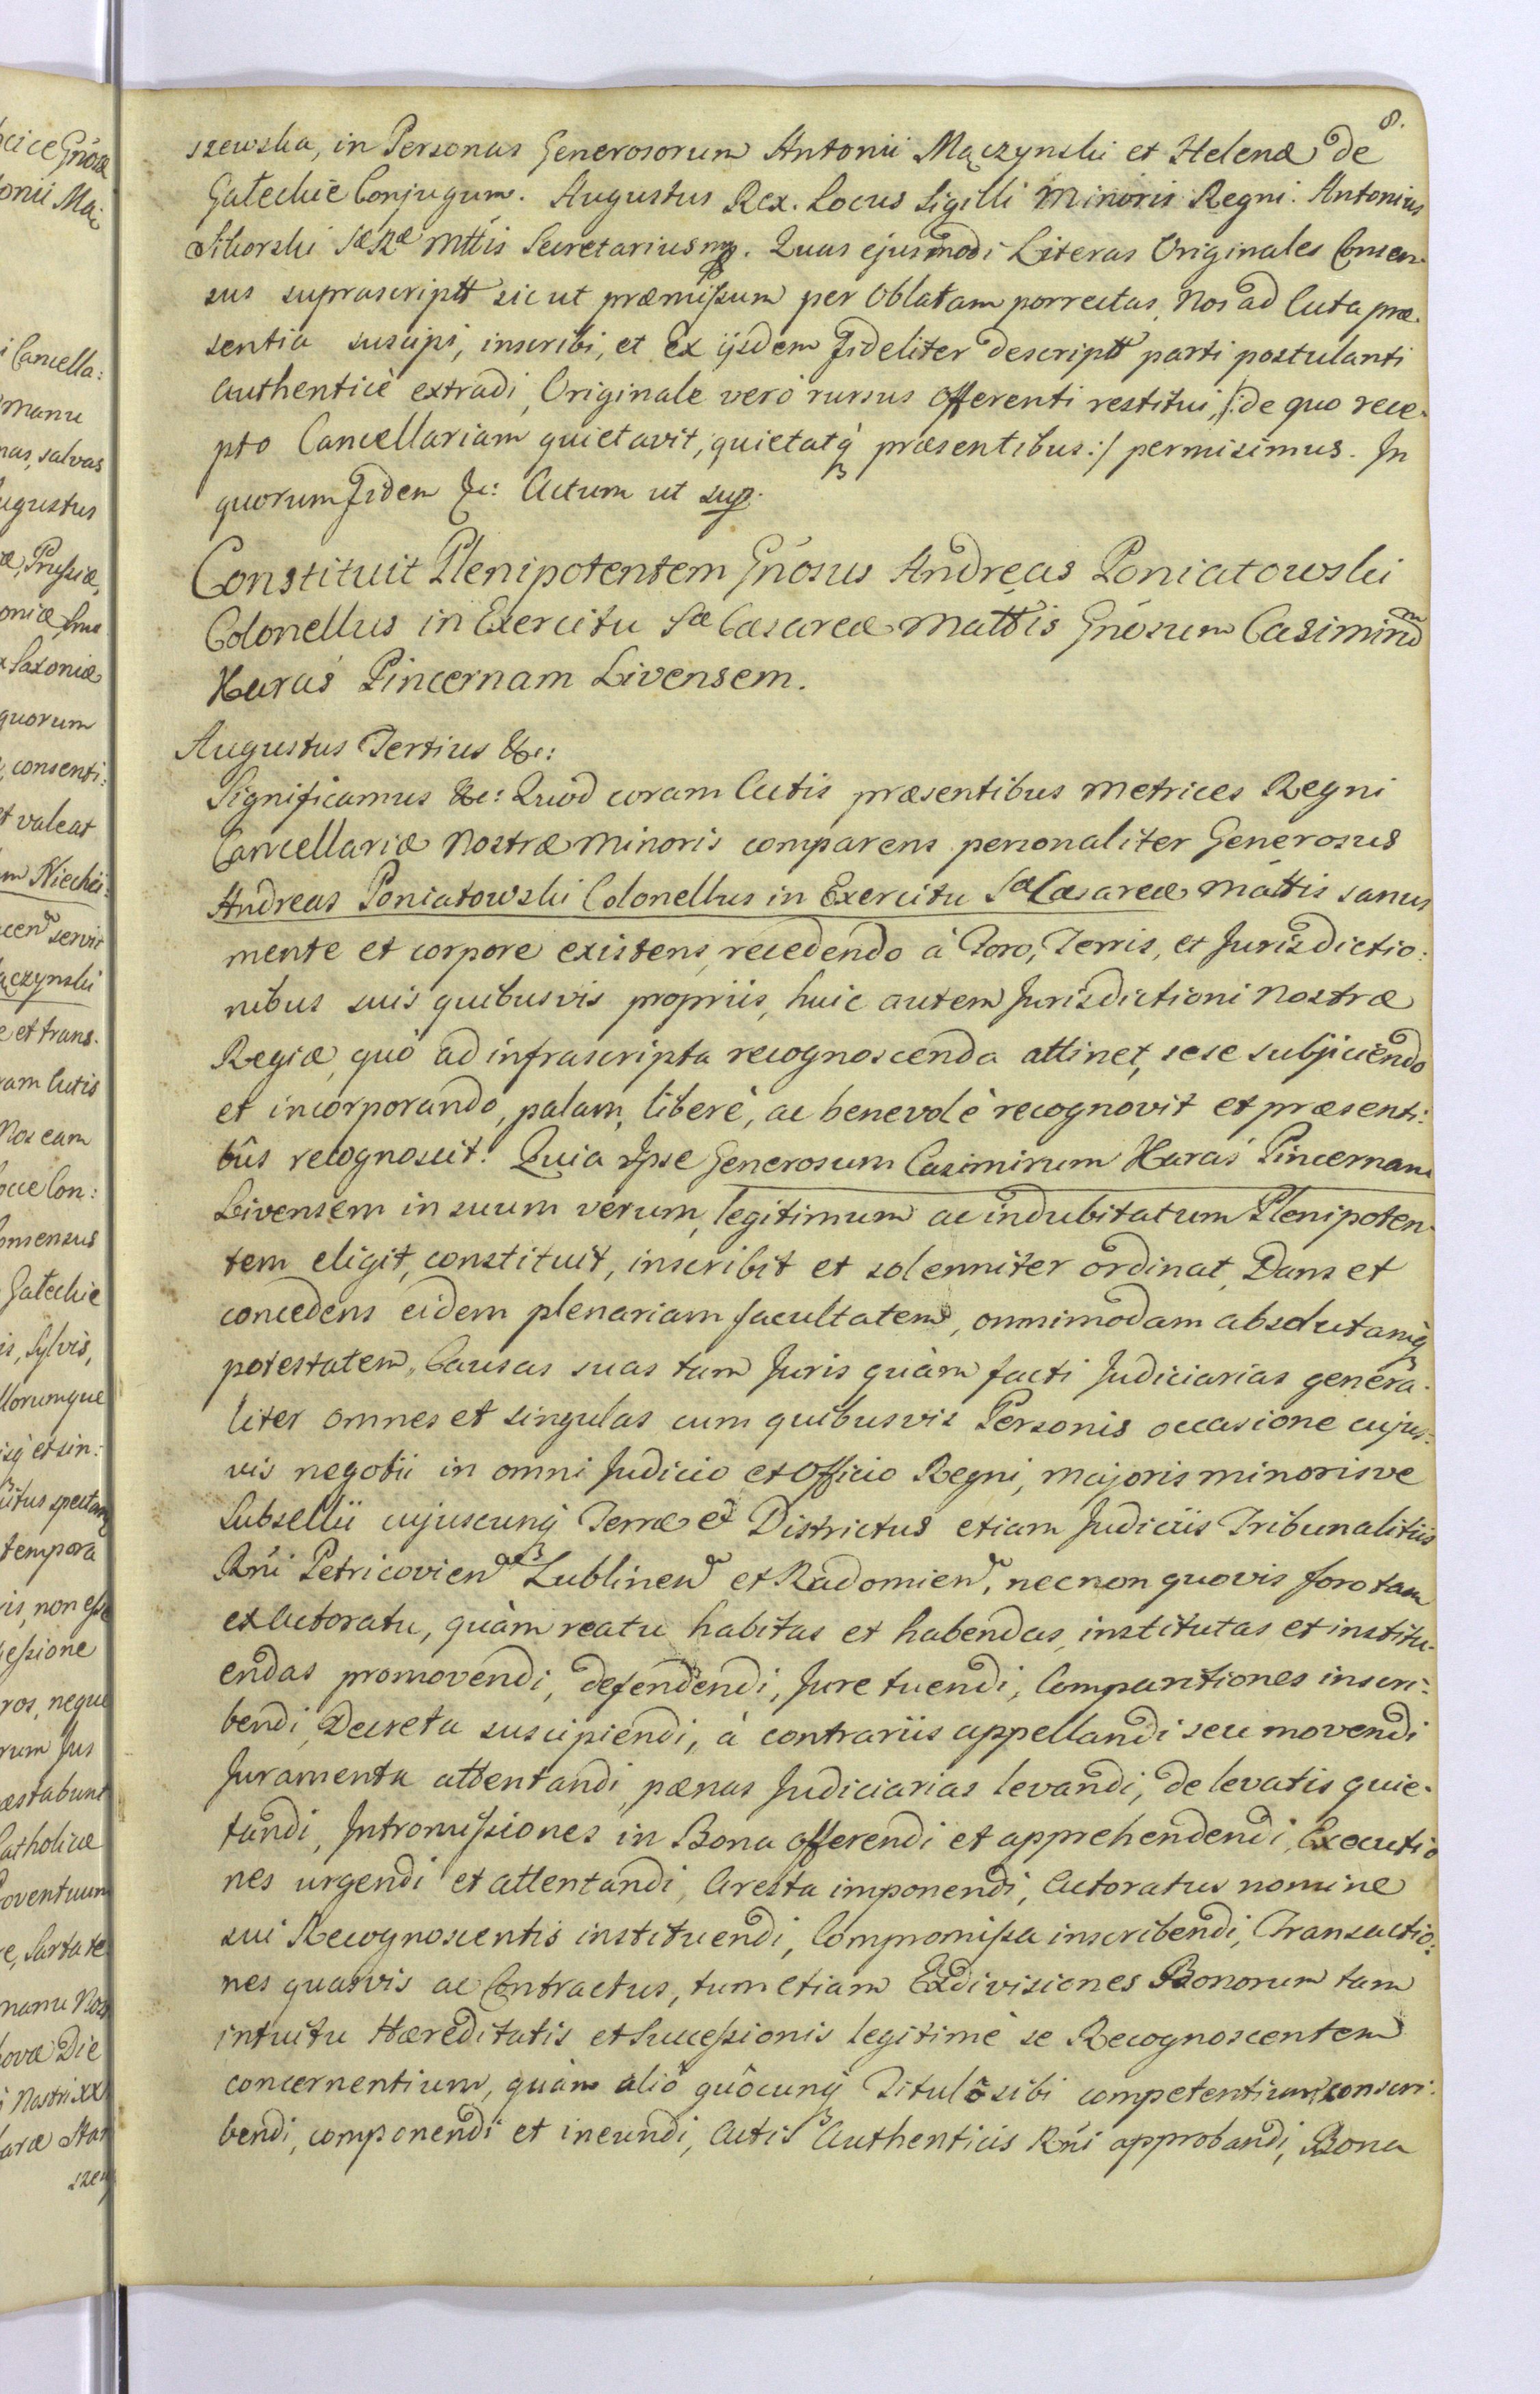 8.
szewska, in Personas Generosorum Antonii Mączynski et Helenæ de
Gałeckie Conjugum. Augustus Rex. Locus Sigilli Minoris Regni. Antonius
Sikorski Sæ Ræ Mttis Secretarius mp. Quas ejusmodi Literas Originales Consen-
sus suprascriptt sic ut præmissum per Oblatam porrectas, Nos ad Acta præ-
sentia suscipi, inscribi, et Ex ijsdem Fideliter descriptt parti postulanti
Authenticè extradi, Originale verò rursus Offerenti restitui, /:de quo rece-
pto Cancellariam quietavit, quietatq præsentibus:/ permisimus. In
quorum Fidem &c: Actum ut sup.
Constituit Plenipotentem Gnosus Andreas Poniatowski
Colonellus in Exercitu Sæ Cæsareæ Mattis Gnosum Casimirum
Karaś Pincernam Livensem.
Augustus Tertius &c:
Significamus &c: Quod coram Actis præsentibus Metrices Regni
Cancellariæ Nostræ Minoris comparens personaliter Generosus
Andreas Poniatowski Colonellus in Exercitu Sæ Cæsareæ Mattis sanus
mente et corpore existens, recedendo à Foro, Terris, et Jurisdictio:
nibus suis quibusvis propriis, huic autem Jurisdictioni Nostræ
Regiæ, quò ad infrascripta recognoscenda attinet, sese subjiciendo
et incorporando, palam, liberè, ac benevolè recognovit et præsenti:
bûs recognoscit. Quia Ipse Generosum Casimirum Karaś Pincernam
Livensem in suum verum, legitimum ac indubitatum Plenipoten-
tem eligit, constituit, inscribit et solenniter ordinat, Dans et
concedens eidem plenariam facultatem, omnimodam absolutamq
potestatem, Causas suas tam Juris quàm facti Judiciarias genera-
liter omnes et singulas cum quibusvis Personis occasione cujus-
vis negotii in omni Judicio et Officio Regni, majoris minorisve
Subsellii cujuscunq Terræ et Districtus etiam Judiciis Tribunalitiis
Rni Petricovien Lublinen et Radomien, necnon quovis foro tam
ex Actoratu, quàm reatu habitas et habendas, institutas et institu-
endas promovendi, defendendi, Jure tuendi, Comparitiones inscri-
bendi, Decreta suscipiendi, à contrariis appellandi seu movendi
Juramenta attentandi, pænas Judiciarias levandi, de levatis quie-
tandi, Intromissiones in Bona offerendi et apprehendendi, Executio
nes urgendi et attentandi, Aresta imponendi, Actoratus nomine
sui Recognoscentis instituendi, Compromissa inscribendi, Transactio:
nes quasvis ac Contractus, tum etiam Exdivisiones Bonorum tam
intuitu Hæreditatis et Successionis legitimè se Recognoscentem
concernentium, quàm aliô quôcunq Titulô sibi competentium conscri-
bendi, componendi et ineundi, Actis Authenticis Rni approbandi, Bona